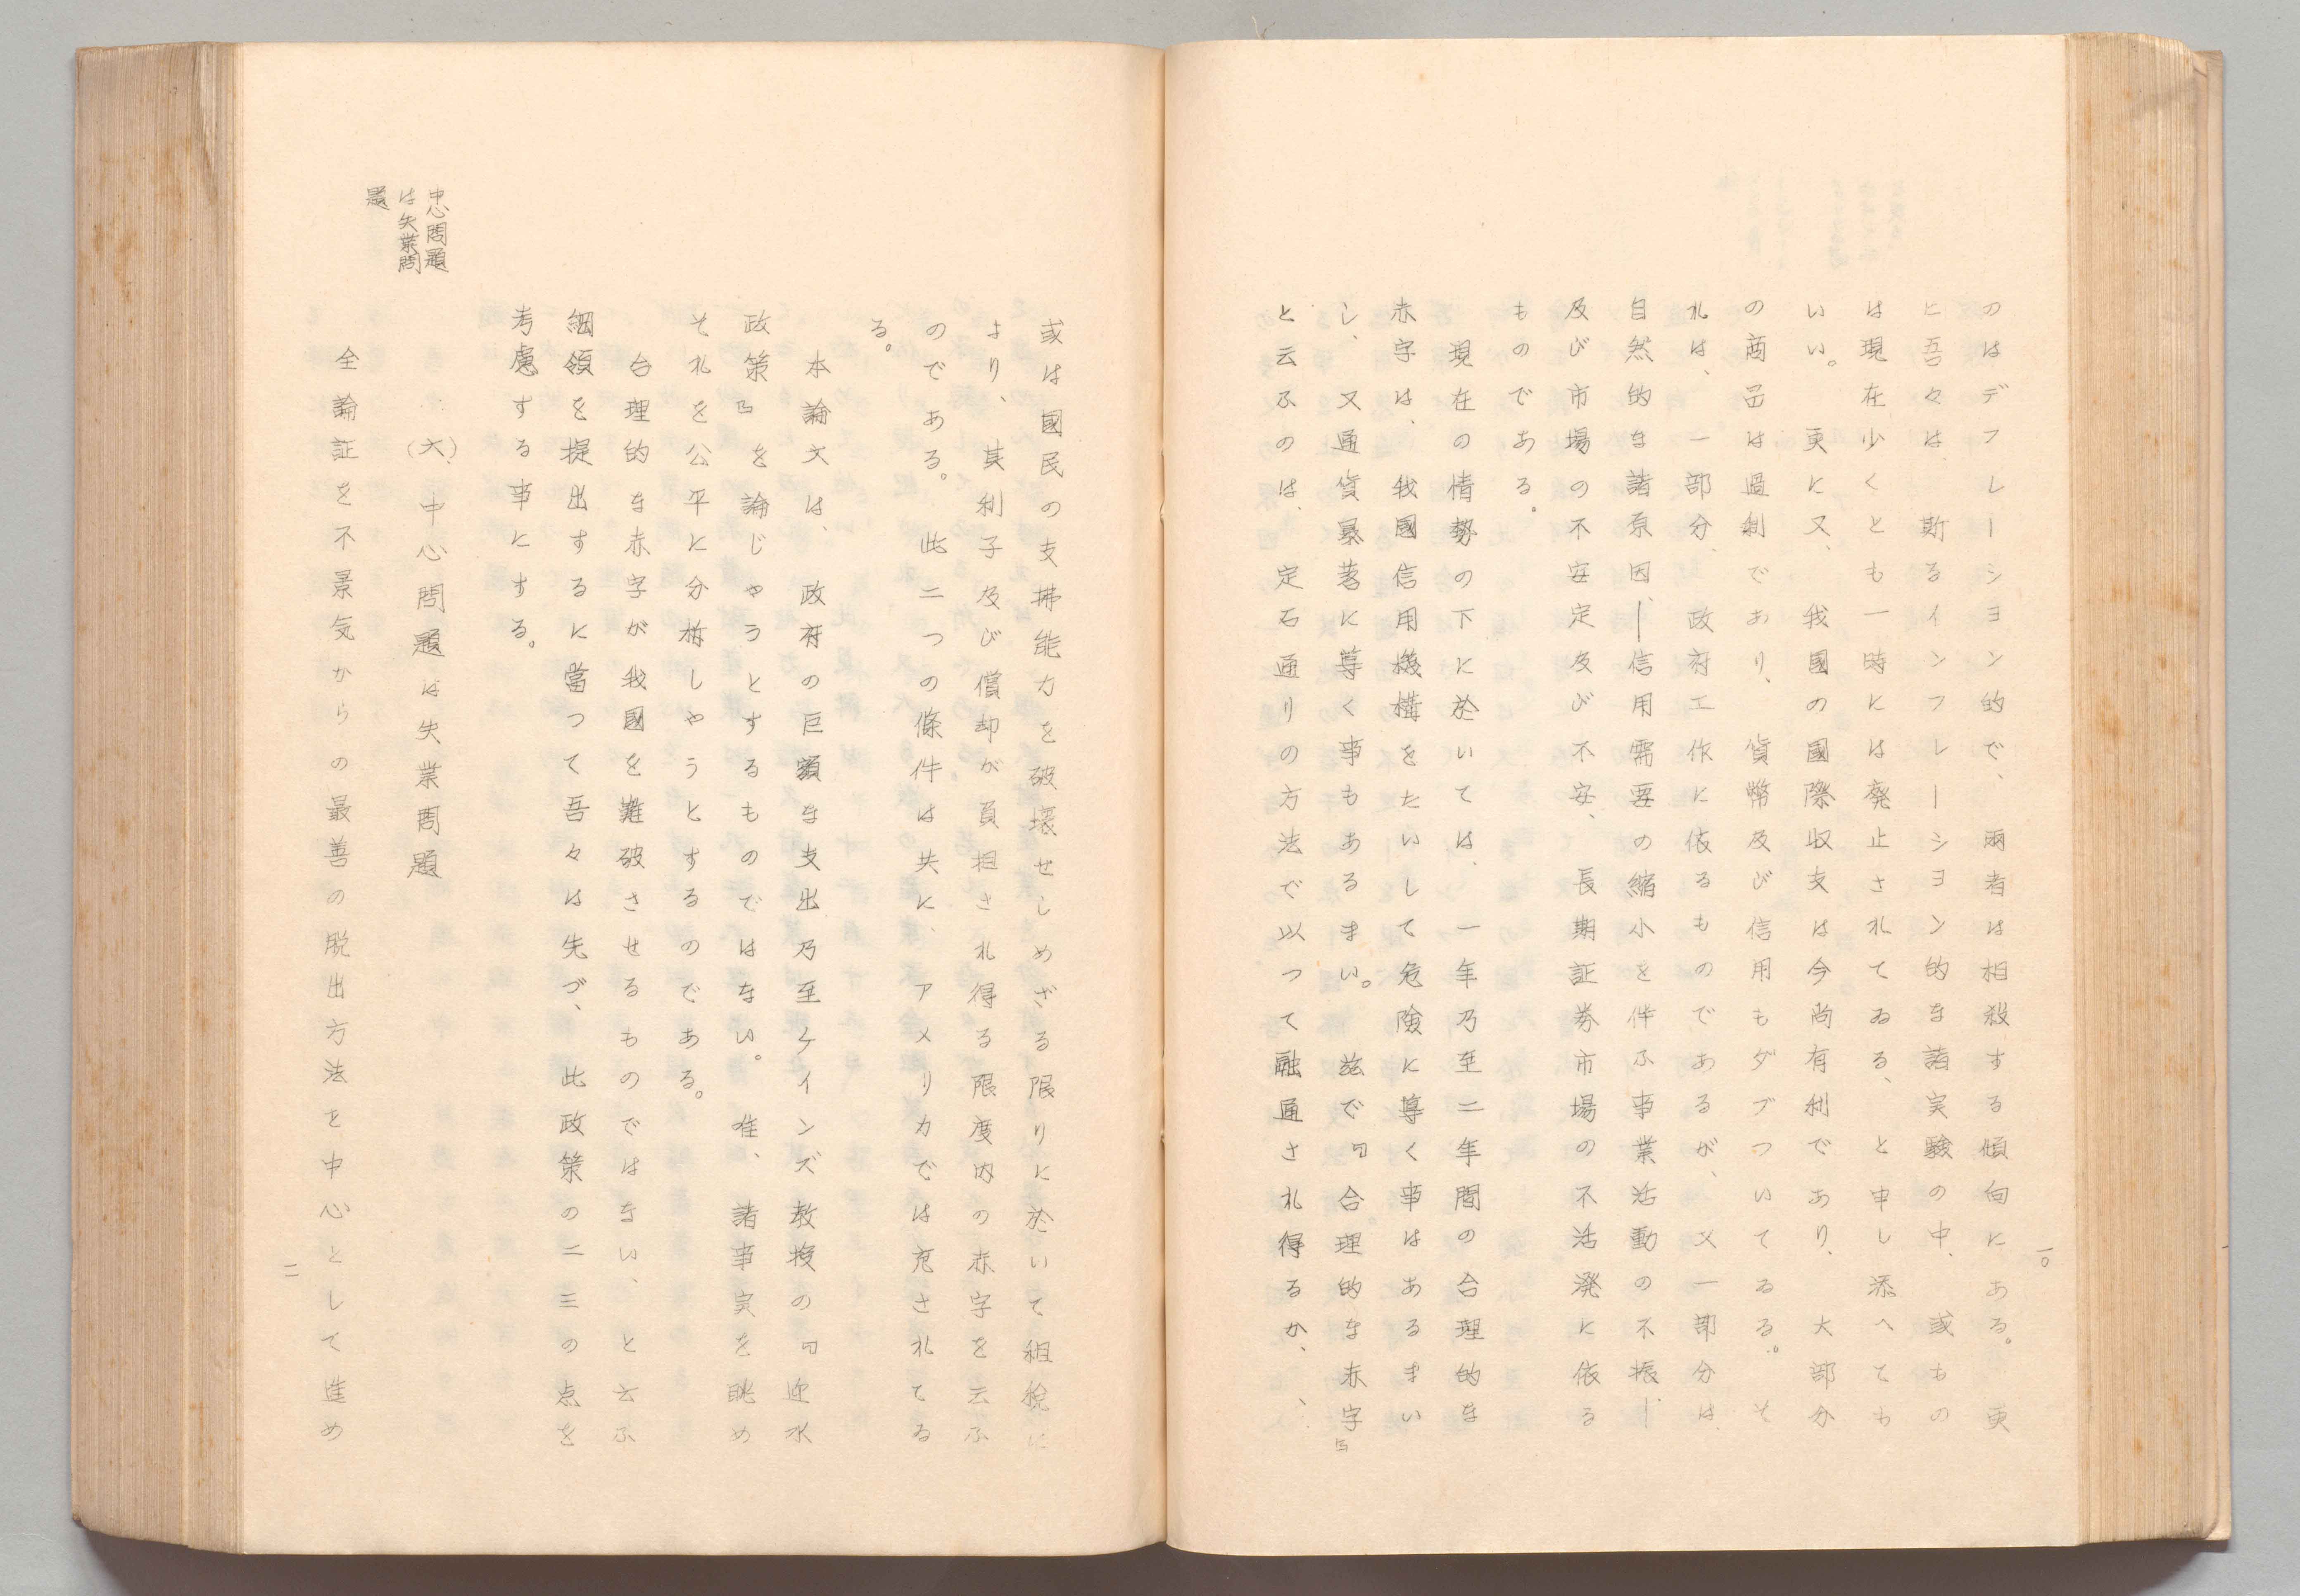 一〇
のはデフレーシヨン的で、兩者は相殺する傾向にある。更
に吾々は、斯るインフレーシヨン的な諸実験の中、或もの
は現在少くとも一時には廃止されてゐる、と申し添へても
いい。更に又、我國の國際収支は今尚有利であり、大部分
の商品は過剰であり、貨幣及び信用もダブついてゐる。そ
れは、一部分、政府工作に依るものであるが、又一部分は
自然的な諸原因、―信用需要の縮小を伴ふ事業活動の不振―
及び市場の不安定及び不安、長期証券市場の不活溌に依る
ものである。
現在の情勢の下に於いては、一年乃至二年間の合理的な
赤字は、我國信用機構をたいして危険に導く事はあるまい
し、又通貨暴落に導く事もあるまい。茲で『合理的な赤字』
と云ふのは、定石通りの方法で以つて融通され得るか、、
或は國民の支拂能力を破壊せしめざる限りに於いて租税に
より、其利子及び償却が負担され得る限度内の赤字を云ふ
のである。此二つの條件は共に、アメリカでは充されてゐ
る。
本論文は、政府の巨額な支出乃至ケインズ教授の『迎水
政策』を論じやうとするものではない。唯、諸事実を眺め
それを公平に分析しやうとするのである。
合理的な赤字が我國を難破させるものではない、と云ふ
綱領を提出するに當つて吾々は先づ、此政策の二三の点を
考慮する事にする。
中心問題
は失業問
題
(六)、中心問題は失業問題
全論証を不景気からの最善の脱出方法を中心として進め
一一